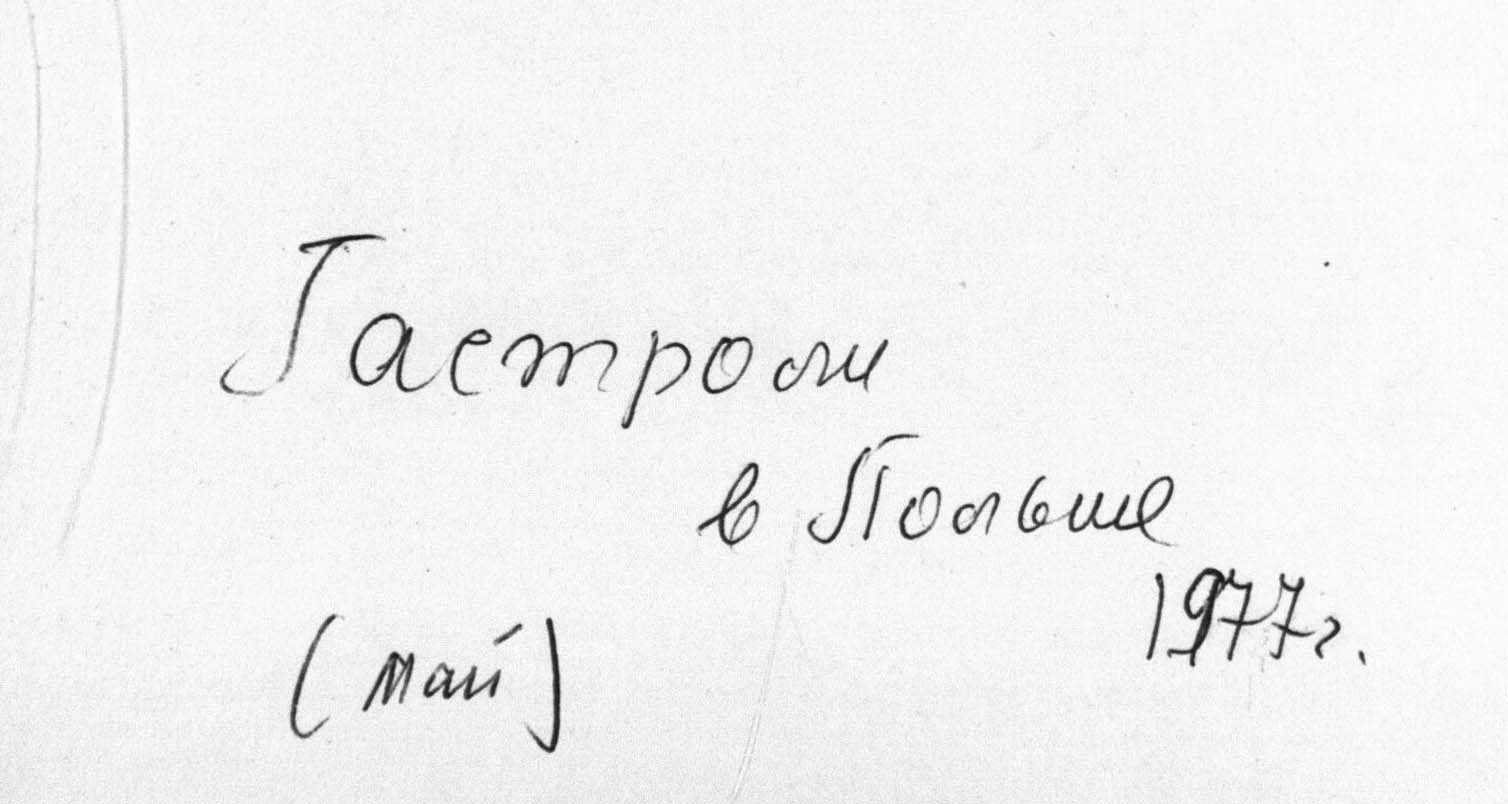 Гастроли
в Польше
1977г.
(май)